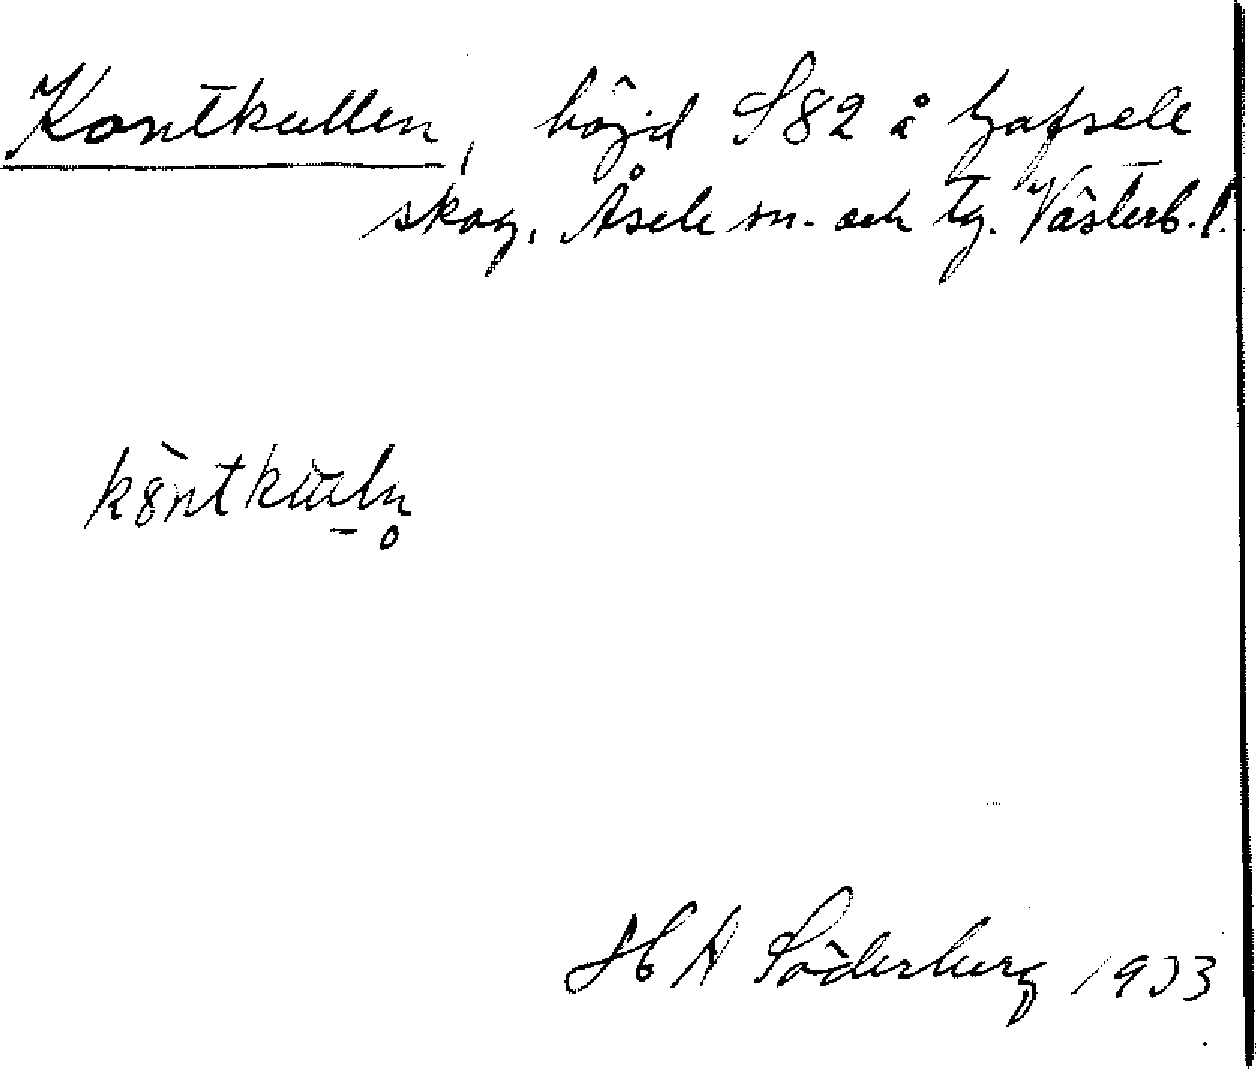 Kontkullen, höjd S82 å Gafsele
skog, Åsele sn. och tg. Västerb. l.
H A Söderberg 1933